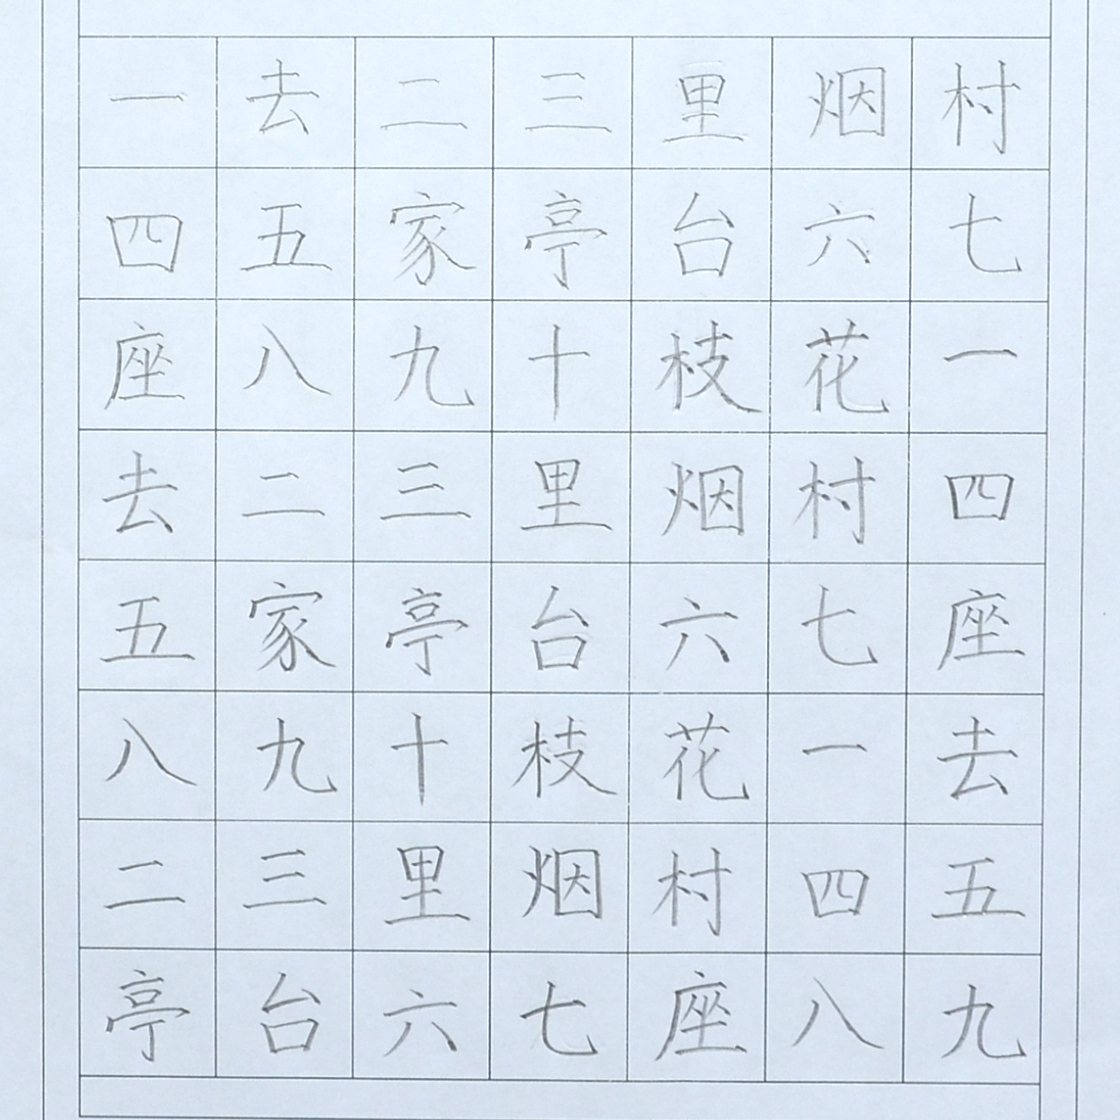 一去二三里烟村
四五家亭台六七
座八九十枝花一
去二三里烟村四
五家亭台六七座
八九十枝花一去
二三里烟村四五
亭台六七座八九